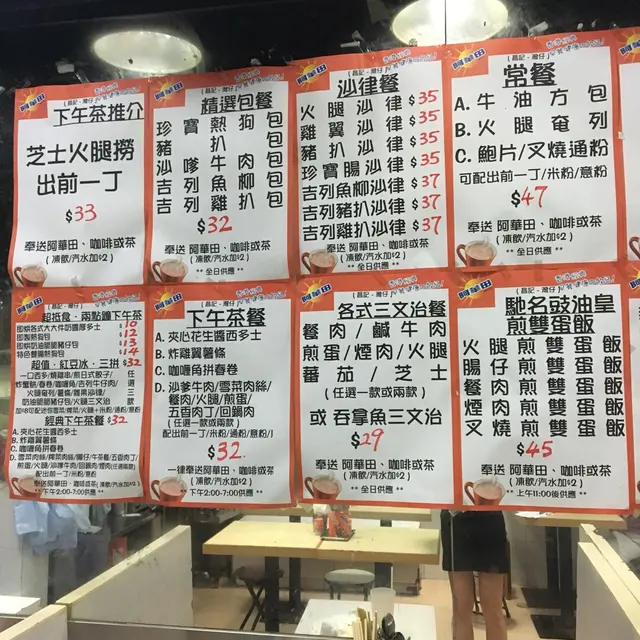 阿華田
（昌記-灣仔）
下午茶推介
芝士火腿撈
出前一丁
$33
奉送 阿華田、咖啡或茶
（凍飲/汽水加$2）
阿華田
（昌記-灣仔）
精選包餐
珍寶熱狗包
豬扒包
沙嗲牛肉包
吉列魚柳包
吉列雞扒包
$32
奉送 阿華田、咖啡或茶
（凍飲/汽水加$2）
** 全日供應 **
阿華田
（昌記-灣仔）
沙律餐
火腿沙律 $35
雞翼沙律 $35
豬扒沙律 $35
珍寶腸沙律 $35
吉列魚柳沙律 $37
吉列豬扒沙律 $37
吉列雞扒沙律 $37
奉送 阿華田、咖啡或茶
（凍飲/汽水加$2）
** 全日供應 **
阿華田
（昌記-灣仔）
常餐
A. 牛油方包
B. 火腿奄列
C. 鮑片/叉燒通粉
可配出前一丁/米粉/意粉
$47
奉送 阿華田、咖啡或茶
（凍飲/汽水加$2）
** 全日供應 **
阿華田
（昌記-灣仔）
超抵食．兩點鐘下午茶
即烘各式大大件奶醬厚多士 $10
即製熱狗包 $12
即烘奶油脆脆豬仔包 $13
特色養腸熱狗包 $14
超值．紅豆冰．三拼 $32
經典下午茶餐 $32
A. 夾心花生醬西多士
B. 炸雞翼薯條
C. 咖喱角拼春卷
配出前一丁/米粉/意粉
奉送阿華田、咖啡或茶（凍飲/汽水加$2）
** 下午2:00-7:00供應 **
阿華田
（昌記-灣仔）
下午茶餐
A. 夾心花生醬西多士
B. 炸雞翼薯條
C. 咖喱角拼春卷
D. 沙爹牛肉/雪菜肉絲/
餐肉/火腿/煎蛋/
五香肉丁/回鍋肉
（任選一款或兩款）
配出前一丁/米粉/通粉/意粉/
$32.
一律奉送阿華田、咖啡或茶
（凍飲/汽水加$2）
** 下午2:00-7:00供應 **
阿華田
各式三文治餐
餐肉/鹹牛肉
煎蛋/煙肉/火腿
蕃茄/芝士
（任選一款或兩款）
或 吞拿魚三文治
$29
奉送 阿華田、咖啡或茶
（凍飲/汽水加$2）
** 全日供應 **
阿華田
（昌記-灣仔）
馳名豉油皇
煎雙蛋飯
火腿煎雙蛋飯
腸仔煎雙蛋飯
餐肉煎雙蛋飯
煙肉煎雙蛋飯
叉燒煎雙蛋飯
$45
奉送 阿華田、咖啡或茶
（凍飲/汽水加$2）
** 上午11:00後供應 **